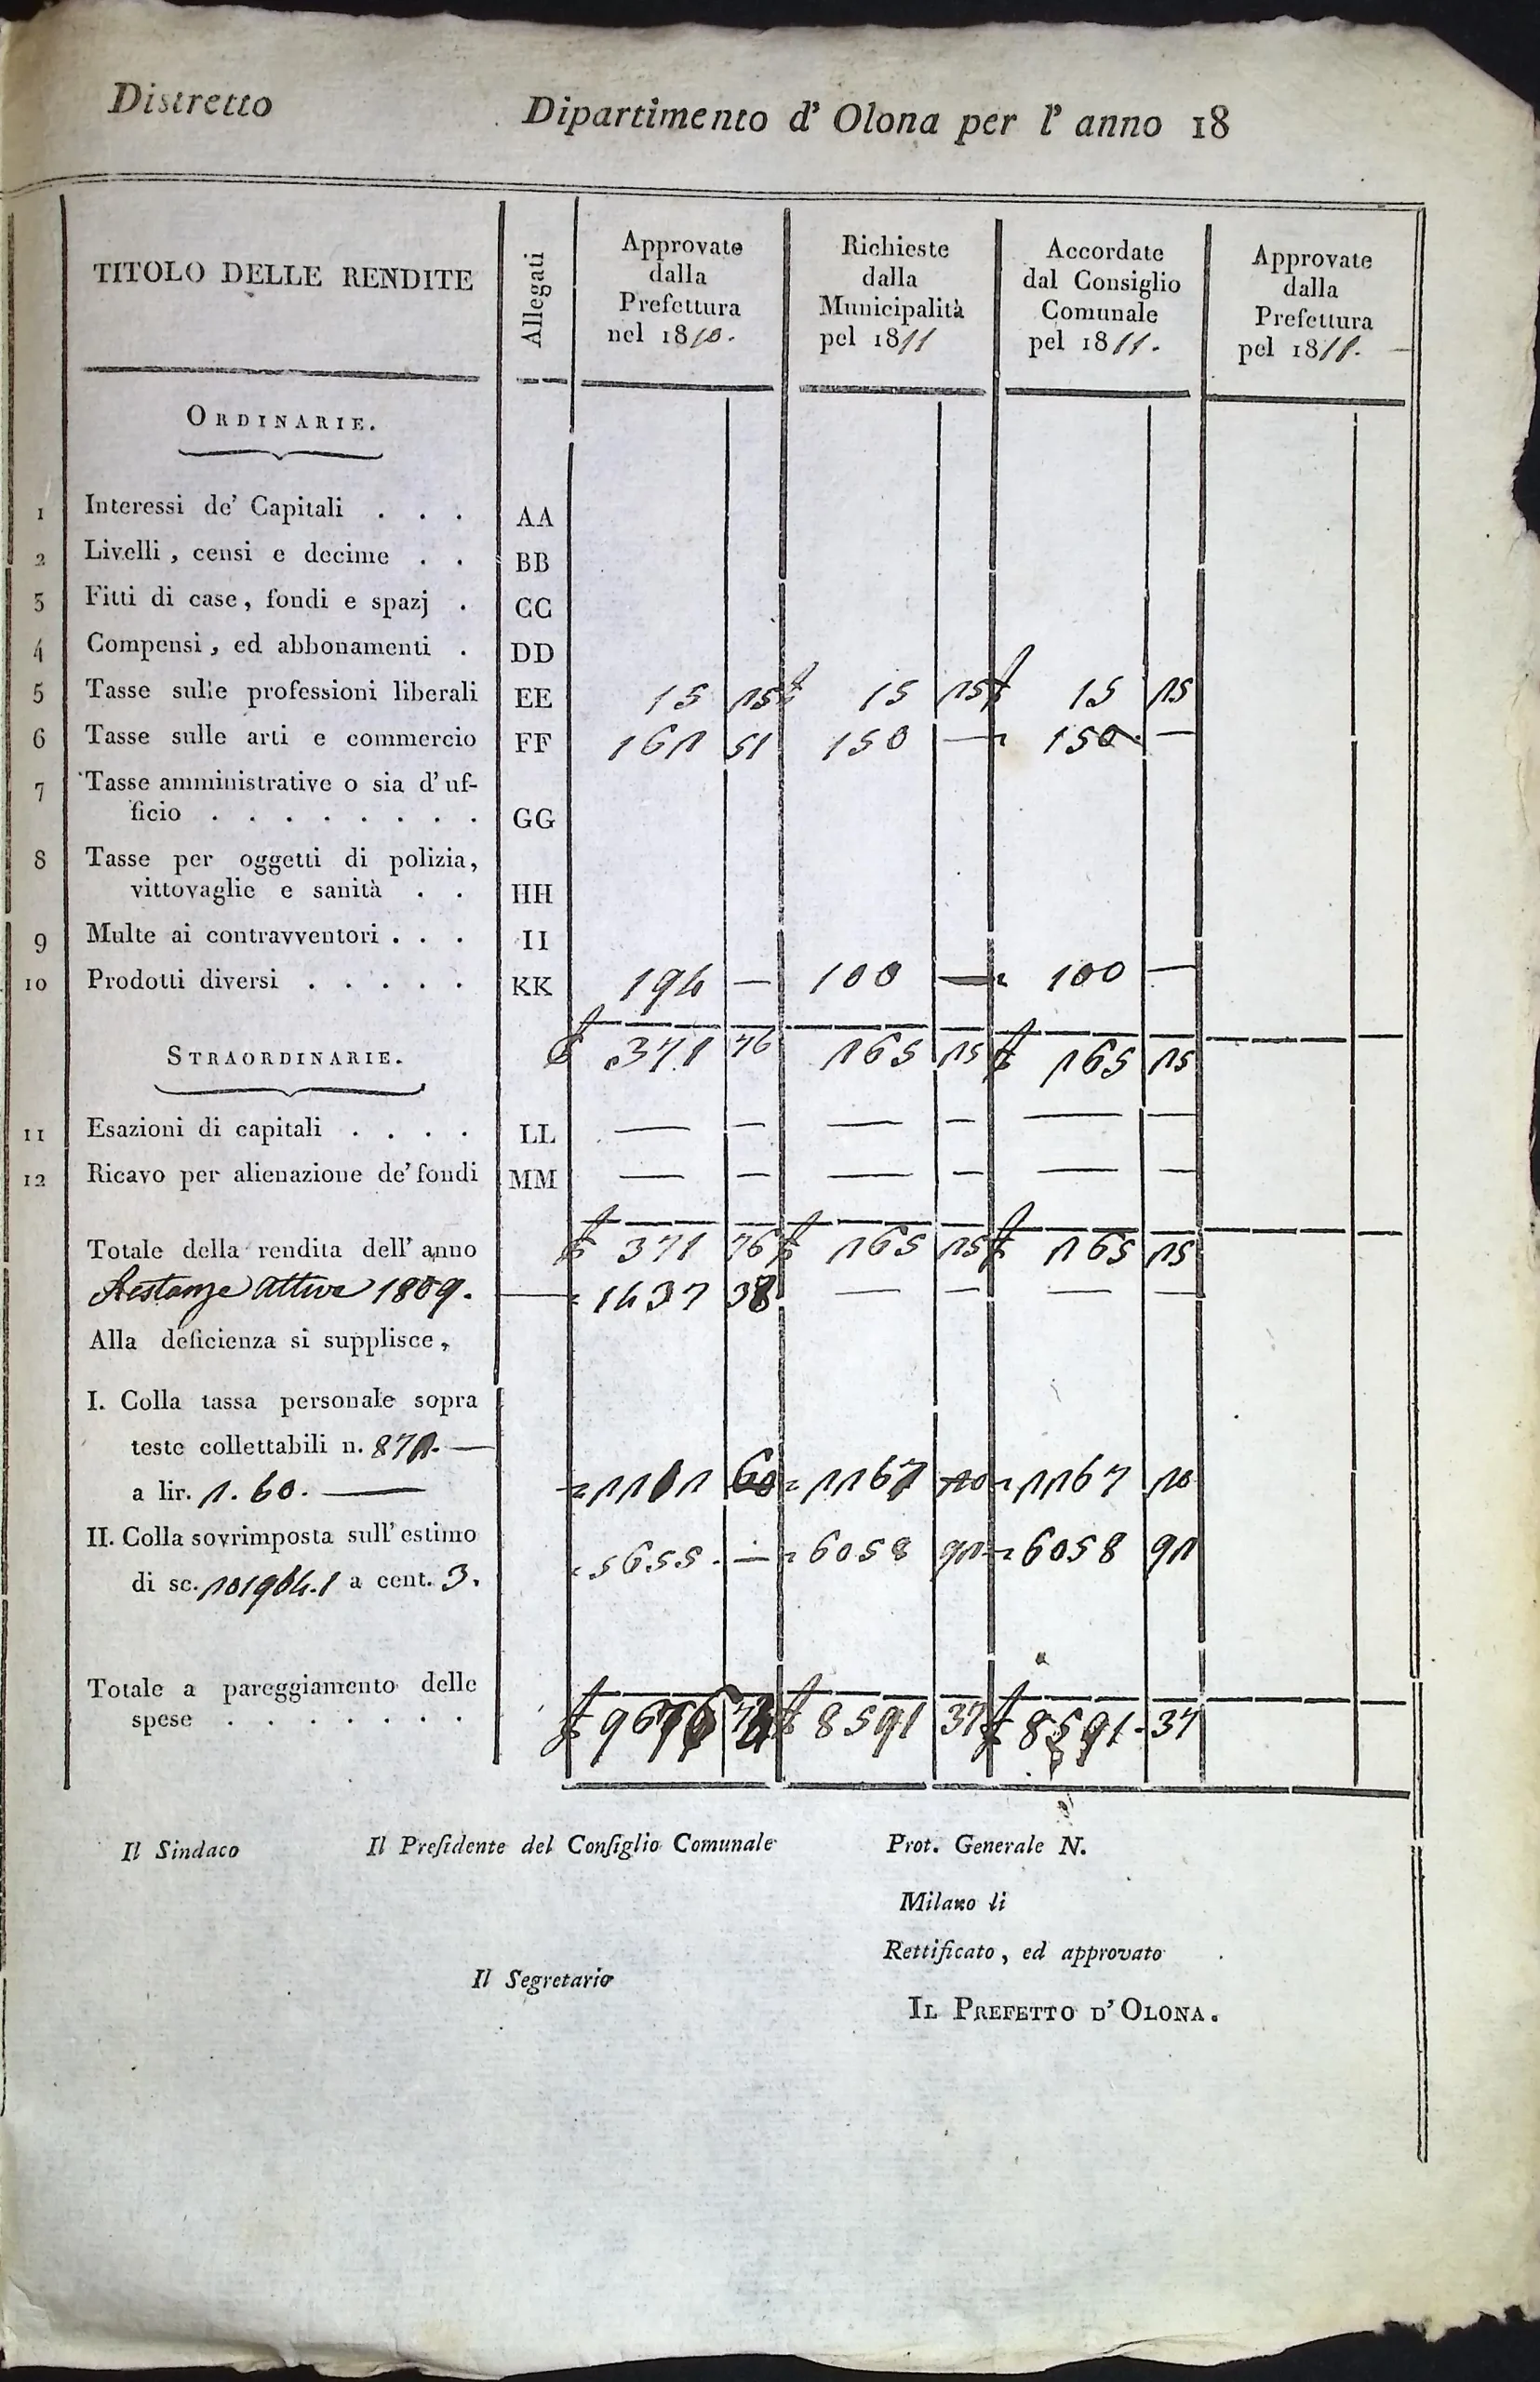 Distretto Dipartimento d' Olona per l' anno 18
TITOLO DELLE RENDITE
Allegati
Approvate
dalla
Prefettura
nel 1810.
Richieste
dalla
Municipalità
pel 1811
Accordate
dal Consiglio
Comunale
pel 1811.
Approvate
dalla
Prefettura
pel 1811.
ORDINARIE.
1 Interessi de' Capitali . . . AA
2 Livelli, censi e decime . . BB
3 Fitti di case, fondi e spazj . CC
4 Compensi, ed abbonamenti . DD
5 Tasse sulle professioni liberali EE 15 15 15 15 15 15
6 Tasse sulle arti e commercio FF 161 51 150 — 150 —
7 Tasse amministrative o sia d' uf-
ficio . . . . . . . . GG
8 Tasse per oggetti di polizia,
vittovaglie e sanità . . HH
9 Multe ai contravventori . . . II
10 Prodotti diversi . . . . . KK 194 — 100 — 100 —
371 76 165 15 165 15
STRAORDINARIE.
11 Esazioni di capitali . . . . LL — — — — — —
12 Ricavo per alienazione de' fondi MM — — — — — —
Totale della rendita dell' anno 371 76 165 15 165 15
Restanze attive 1809. — 1437 38 — — — —
Alla deficienza si supplisce,
I. Colla tassa personale sopra
teste collettabili n. 871. —
a lir. 1. 60. — 60 1167 10 1167 10
II. Colla sovrimposta sull' estimo
di sc. 101904.1 a cent. 3. 5655. — 6058 91 6058 91
Totale a pareggiamento delle
spese . . . . . . . 8591 37 8591. 37
Il Sindaco Il Preſidente del Conſiglio Comunale Prot. Generale N.
Milano li
Rettificato, ed approvato
Il Segretario
IL PREFETTO D' OLONA.